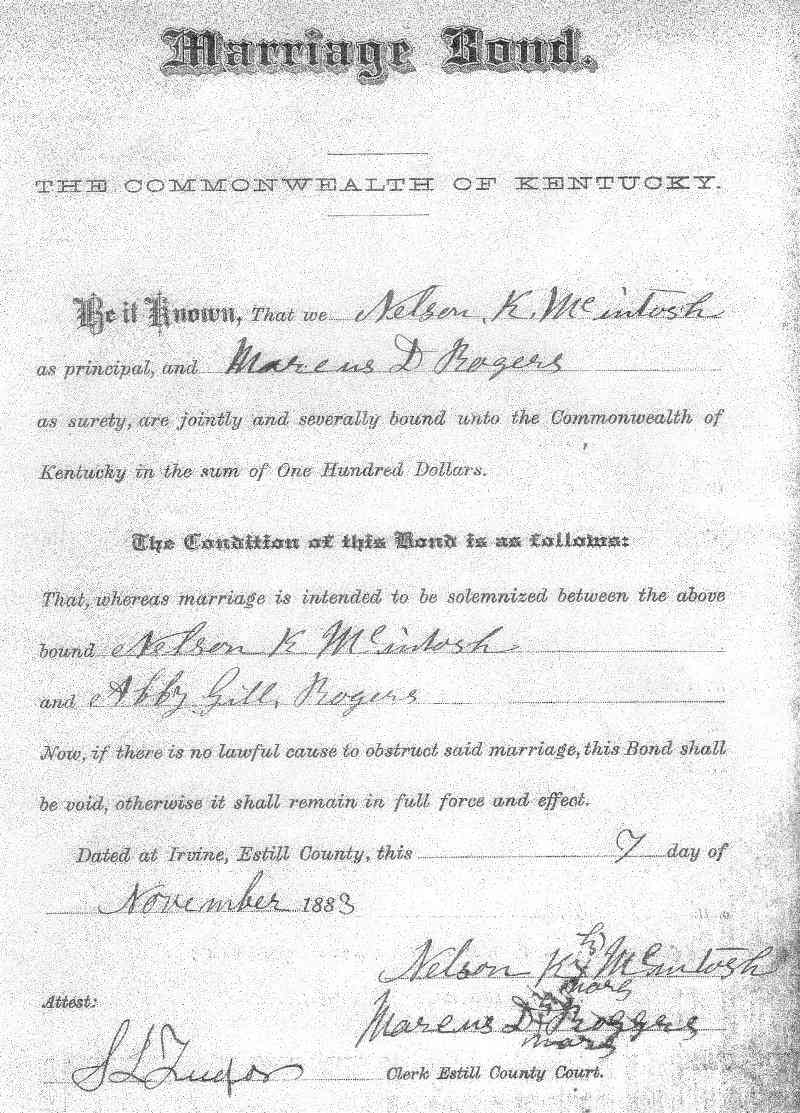 Marriage Bond.
THE COMMONWEALTH OF KENTUCKY.
Be it Known, That we Nelson K. McIntosh
as principal, and Marcus D Rogers
as surety, are jointly and severally bound unto the Commonwealth of
Kentucky in the sum of One Hundred Dollars.
The Condition of this Bond is as follows:
That, whereas marriage is intended to be solemnized between the above
bound Nelson K McIntosh
and Abby Gill Rogers
Now, if there is no lawful cause to obstruct said marriage, this Bond shall
be void, otherwise it shall remain in full force and effect.
Dated at Irvine, Estill County, this 7 day of
November 1883
his
Nelson K x McIntosh
mark
Attest:
Marcus D Roggers
mark
S L Tudor Clerk Estill County Court.